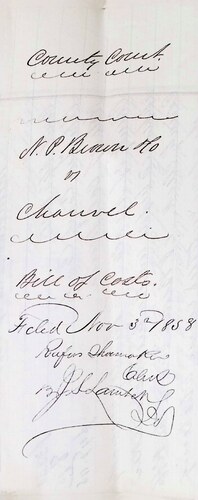 County Court.
N. P. Brown &Co
vs
Chauvel.
Bill of Costs.
Filed Nov 3d 1858
Rufus Shoemaker
Clerk
By J. S. Lambert